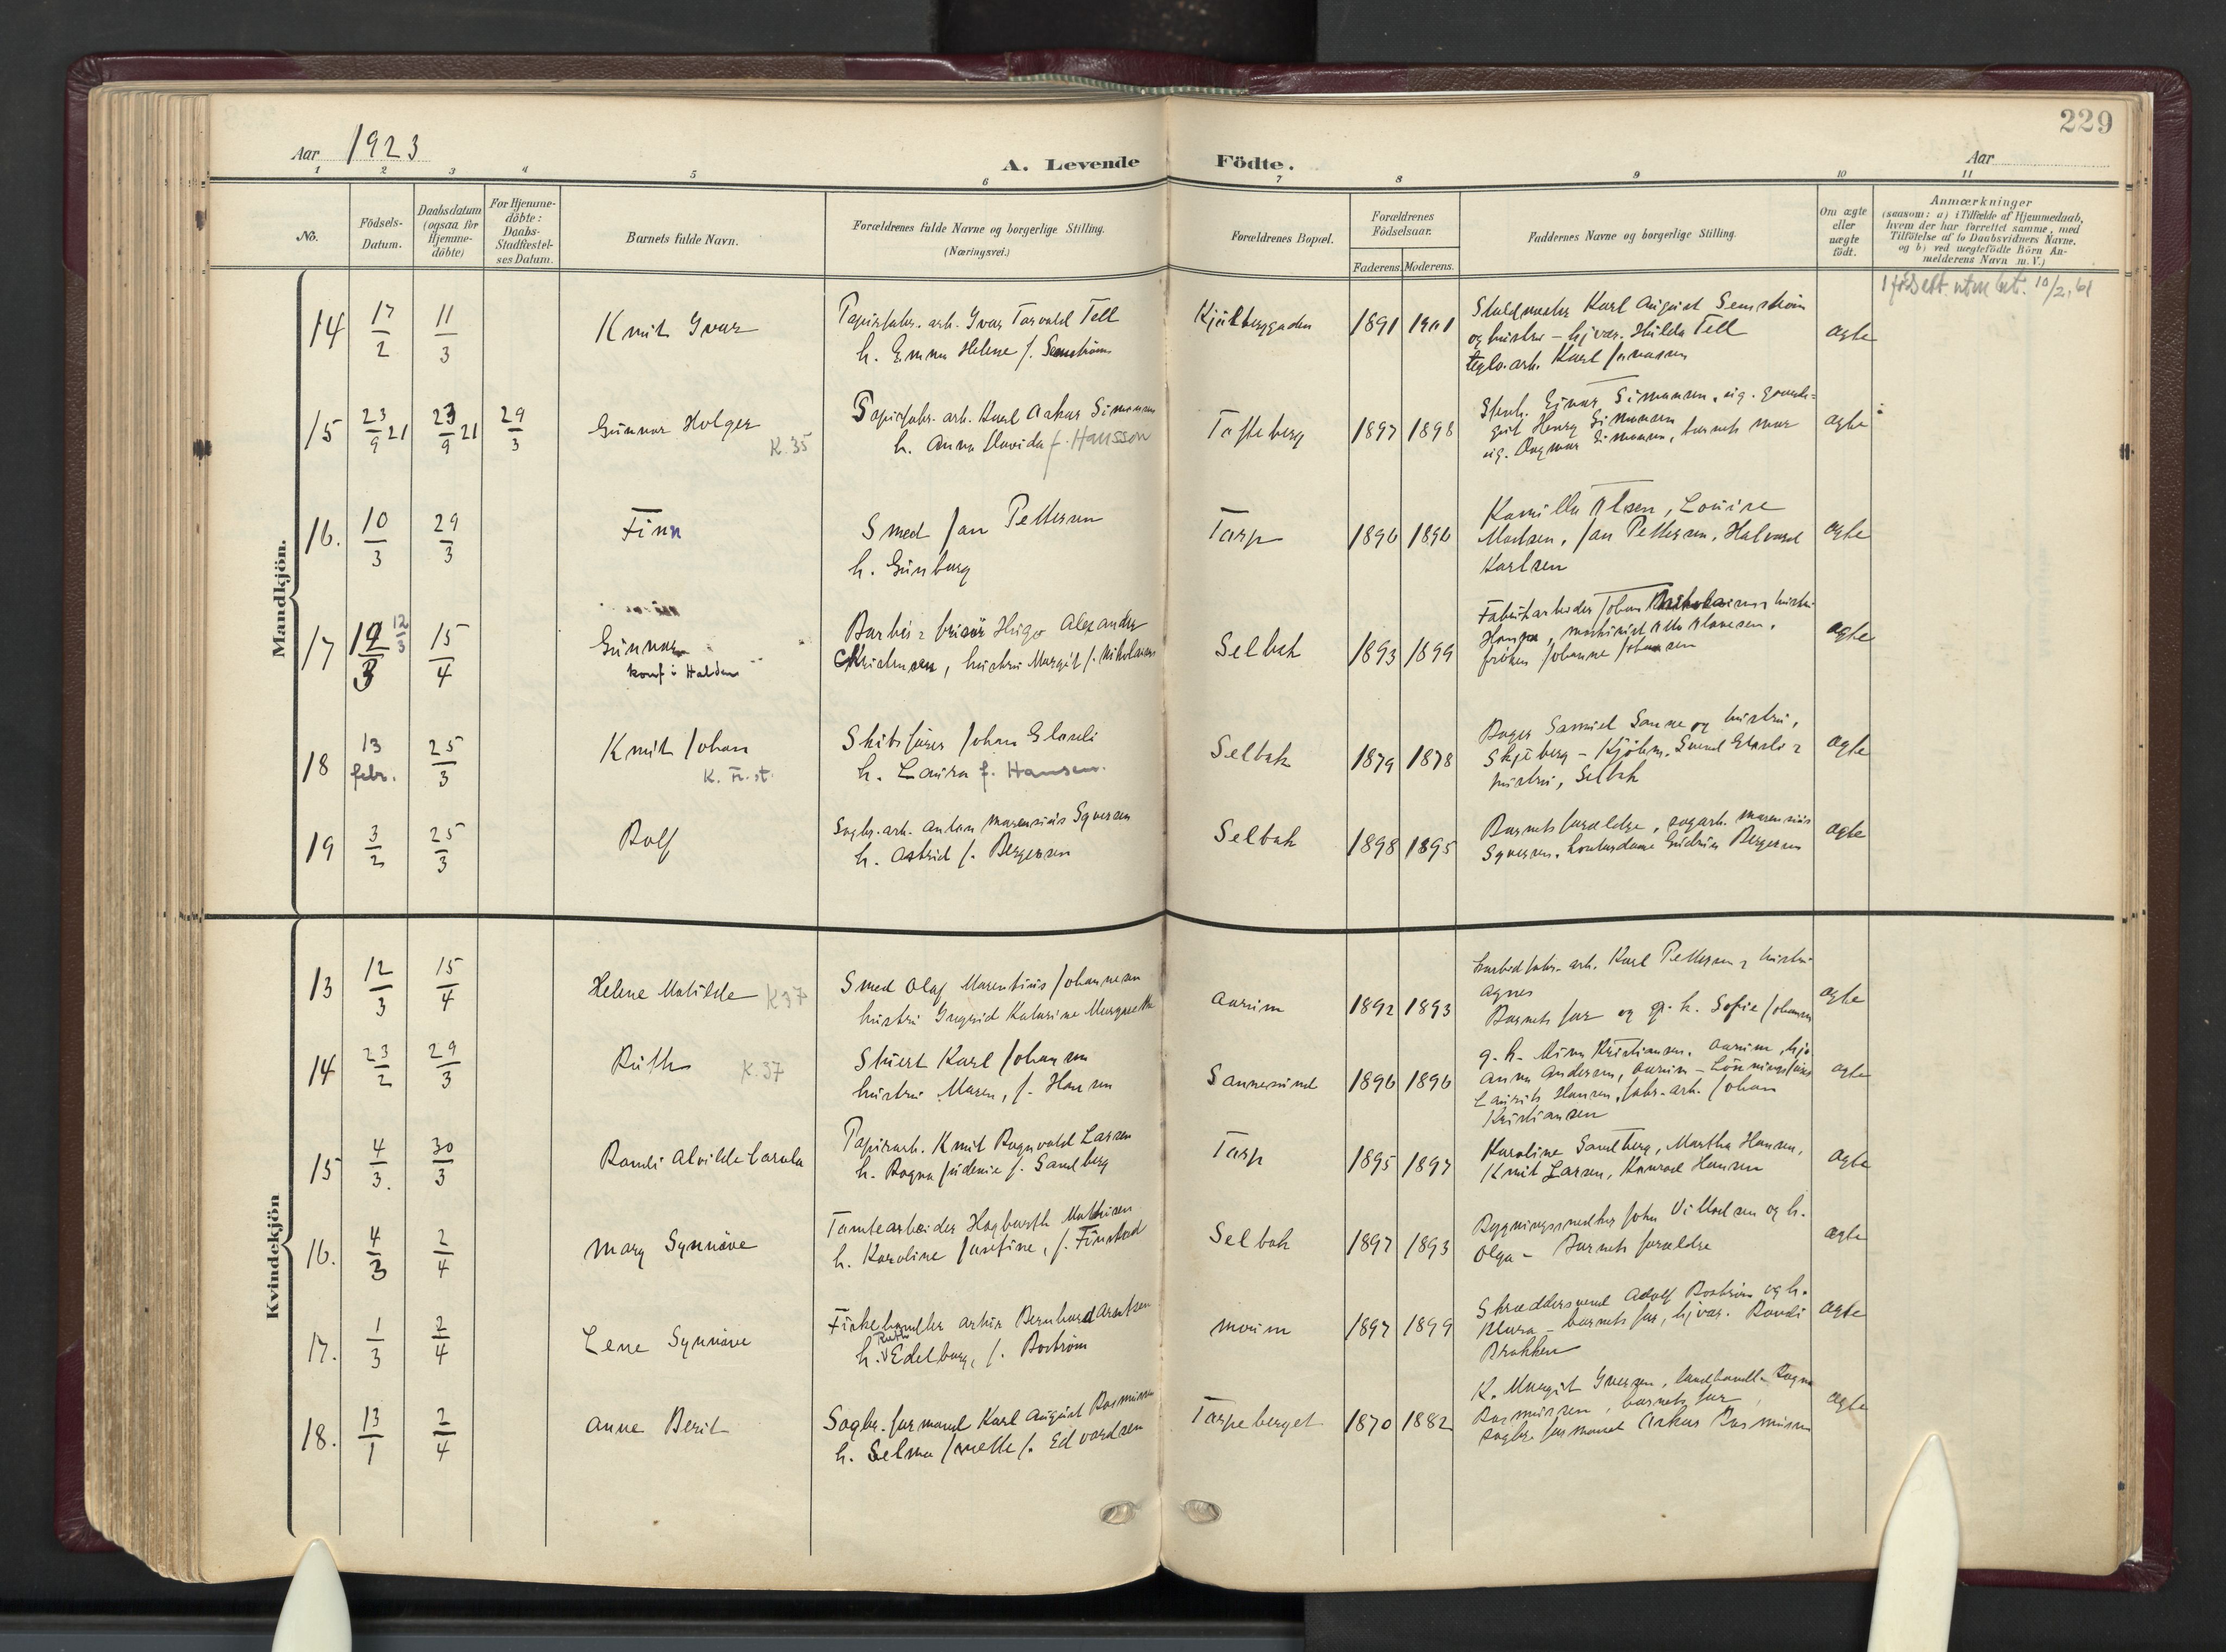 229
Aar 1923
A. Levende Födte.
Aar
1 2 3 4 5 6 7 8 9 10 11
No.
Födsels-
Datum.
Daabsdatum
(ogsaa for
Hjemme-
döbte)
For Hjemme-
döbte:
Daabs-
Stadfæstel-
ses Datum.
Barnets fulde Navn.
Forældrenes fulde Navne og borgerlige Stilling.
(Næringsvei.)
Forældrenes Bopæl.
Forældrenes
Födselsaar.
Faderens. Moderens.
Faddernes Navne og borgerlige Stilling.
Om ægte
eller
uægte
födt.
Anmærkninger
(saasom: a) i Tilfælde af Hjemmedaab,
hvem der har forrettet samme, med
Tilföielse af to Daabsvidners Navne,
og b) ved uægtefödte Börn An-
melderens Navn m. V.)
Mandkjön.
14 17/2 11/3 Knut Ivar
Papirfabr. arb. Ivar Torvald Tell
h. Emma Helene f. Semström
Kjölberggaden 1891 1901
Karl August Semström
og hustru - hjvær. Hulda Tell
teglv. arb. Karl Jonassen
ægte
1 fødselsatt. utm. 10/2.61
15 23/9 21 23/9 21 29/3 Gunnar Holger
K. 35
Papirfabr. arb. Karl Oskar Simonsen
h. Anna Davida f. Hansson
Tofteberg 1897 1898
Einar Simonsen, sig.
Henry Simonsen
sig. Dagmar Simonsen, barnets mor
ægte
16. 10/3 29/3 Finn
Smed Jan Pettersen
h. Gunborg
Torp 1896 1896
Kamilla Olsen, Lovise
Madsen, Jan Pettersen, Halvard
Karlsen
ægte
17 12/3 12/3 15/4 Gunnar
konf i Halden
Barber & frisör Hugo Alexander
Christensen, hustru Margit f. Nikolaisen
Selbak 1893 1899
Fabrikarbeider Johan Nikolaisen, hustru
maskinist Otto Olavesen,
fröken Johanne Johansen
ægte
18 13 febr. 25/3 Knut Johan
K. Fr. st.
Skibsförer Johan Elandli
h. Laura f. Hansen.
Selbak 1879 1878
Bager Samuel Sanne og hustru,
Skjeberg - Kjöbm.
hustru, Selbak
ægte
19 3/2 25/3 Rolf
Sagbr. arb. Anton Marensius Syversen
h. Astrid f. Bergersen
Selbak 1898 1895
Barnets forældre, sagarb. Marensius
Syversen, kontordame Gudrun Bergersen
ægte
Kvindekjön
13 12/3 15/4 Helene Matilde K 37
Smed Olaf Marentius Johannesen
hustru Ingrid Katarine Margrethe
Aarum 1892 1893
Karbidfabr. arb. Karl Pettersen & hustru
Agnes
Barnets far og g. k. Sofie Johansen
ægte
14 23/2 29/3 Ruth K. 37
Stuert Karl Johansen
hustru Maren, f. Hansen
Sannesund 1896 1896
g. k. Mina Kristiansen, Aarum, hjv.
Anna Andersen, Aarum -
Laurits Hansen, fabr. arb. Johan
Kristiansen
ægte
15 4/3. 30/3 Randi Alvilde Carola
Papirarb. Knut Ragnvald Larsen
h. Ragna Judense f. Sandberg
Torp 1895 1897
Karoline Sandberg, Martha Hansen,
Knut Larsen, Konrad Hansen
ægte
16. 4/3 2/4 Mary Synnöve
Tomtearbeider Hagbarth Mathisen
h. Karoline Josefine, f. Finstad
Selbak 1897 1893
Bygningssnedker John Villadsen og h.
Olga - Barnets forældre
ægte
17. 1/3 2/4 Lene Synnöve
Fiskehandler Artur Bernhard Arntsen
Ruth
h. v Edelborg, f. Boström
Moum 1897 1899
Skræddersvend Adolf Boström og h.
Klara - barnets far, hjvær. Randi
Brakken
ægte
18. 13/1 2/4 Anne Berit
Sagbr. formand Karl August Rasmussen
h. Selma Jonette f. Edvardsen
Torpeberget 1870 1882
K. Margit Iversen, landhandler Ragna
Rasmussen, barnets far,
sagbr. formand Oskar Rasmussen
ægte